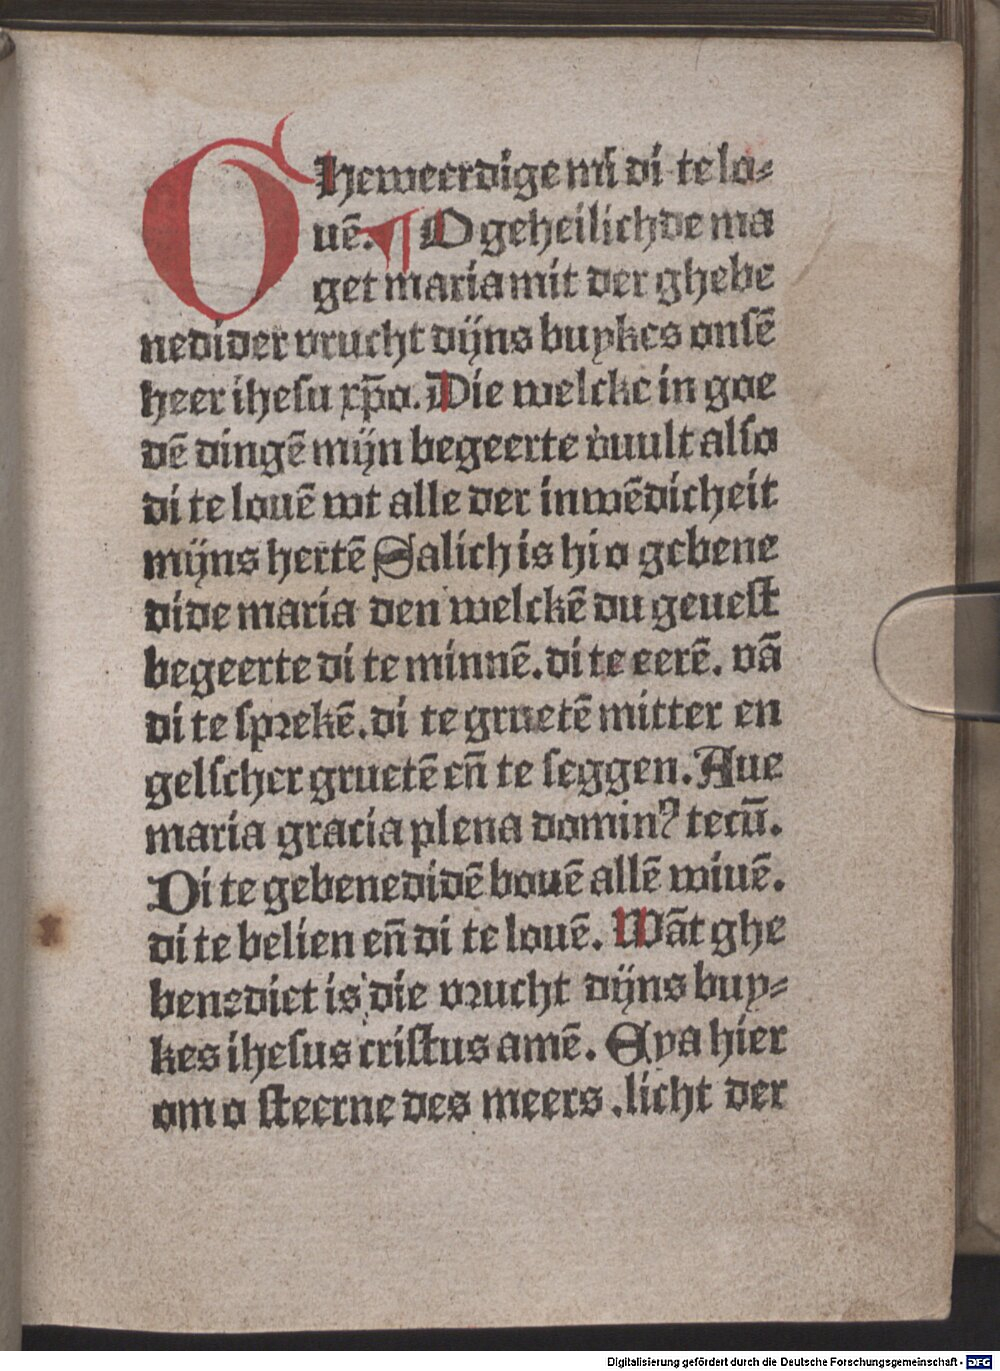 Gheweerdige mi di te lo⸗
uē. ¶ O geheilichde ma
get maria mit der ghebe
nedider vrucht dijns buykes onſē
heer iheſu xp̄o. Die welcke in goe
dē dingē mijn begeerte vuult alſo
di te louē wt alle der inwēdicheit
mijns hertē Salich is hi o gebene
dide maria den welckē du geueſt
begeerte di te minnē. di te eerē. vā
di te ſprekē. di te gruetē mitter en
gelſcher gruetē en̄ te ſeggen. Aue
maria gracia plena domin⁹ tecū.
Di te gebenedidē bouē allē wiuē.
di te belien en̄ di te louē. Wāt ghe
benediet is die vrucht dijns buy⸗
kes iheſus criſtus amē. Eya hier
om o ſteerne des meers . licht der
Digitalisierung gefördert durch die Deutsche Forschungsgemeinschaft - DFG